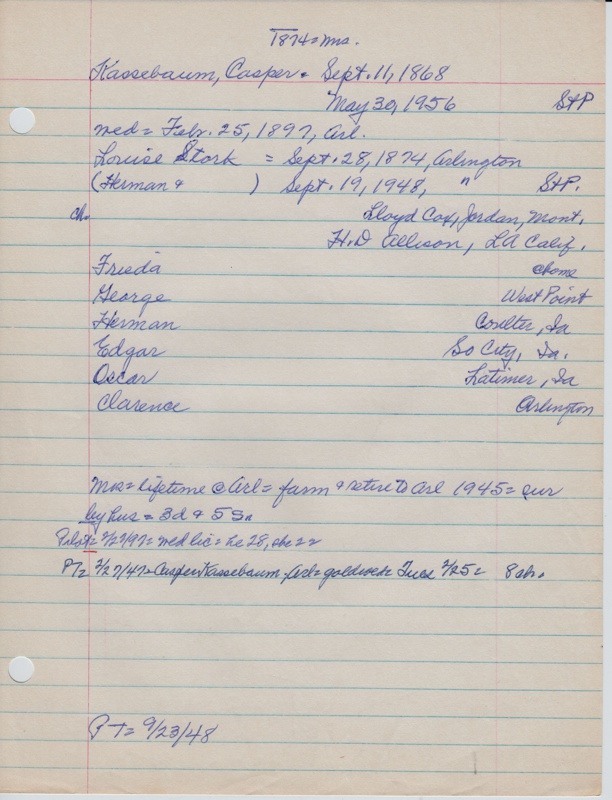 1874 = Mrs.
Kassebaum, Casper = Sept. 11, 1868
May 30, 1956 StP
med = Febr. 25, 1897, Arl.
Louise Stork = Sept. 28, 1874, Arlington
(Herman & ) Sept. 19, 1948, " StP.
ch. Lloyd Cox, Jordan, Mont.
H.D Allison, LA Calif.
Frieda @home
George West Point
Herman Coulter, Ia
Edgar So City, Ia.
Oscar Latimer, Ia
Clarence Arlington
Mrs = lifetime @ Arl = farm & retire to Arl 1945 = sur
by hus = 3d & 5 s.
Pilot = 2/27/97 = med lic = he 28, she 22
PT = 2/27/47 = Casper Kassebaum, Arl = goldwed = Tues 2/25 = 8 ch.
PT = 9/23/48